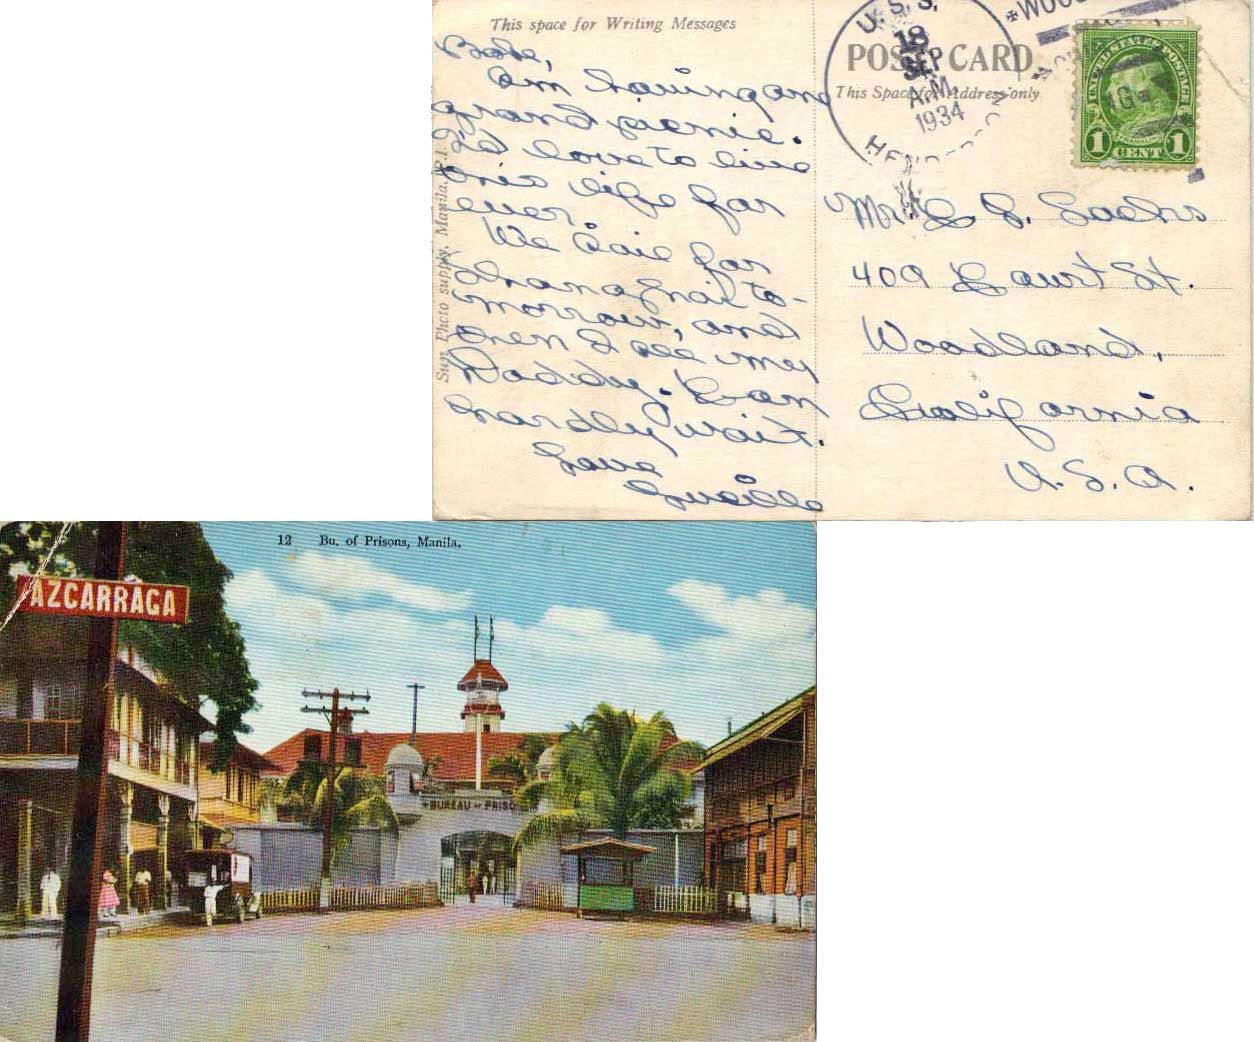 This space for Writing Messages
Babe,
Am having one
grand picnic.
I'd love to live
this life for
ever.
We sail for
Shanghai to-
morrow, and
then I see my
Daddy. Can
hardly wait.
Love
Lucille
Sun Photo supply, Manila, P. I.
U. S. S.
18
SEP
A.M.
1934
POST CARD
This Space for Address only
UNITED STATES POSTAGE
1 CENT 1
Mr.
409 Court St.
Woodland,
California
U. S. A.
12 Bu. of Prisons, Manila.
AZCARRAGA
BUREAU OF PRISO